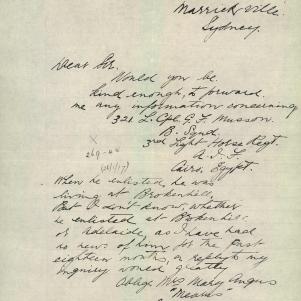 Marrickville
Sydney.
Dear Sir.
Would you be
kind enough, to forward
me any information concerning
321 L. Cpl. G. F. Musson.
B. Sqnd
3rd Light Horse Regt.
A. I. F
Cairo, Egypt.
X
When he enlisted, he was
living at Brokenhill,
But I don't know, whether
he enlisted at Brokenhill
or Adelaide, as I have had
no news of him for the past
eighteen months, a reply to my
inquiry would greatly
Oblige Mrs Mary Angus
"Mearus